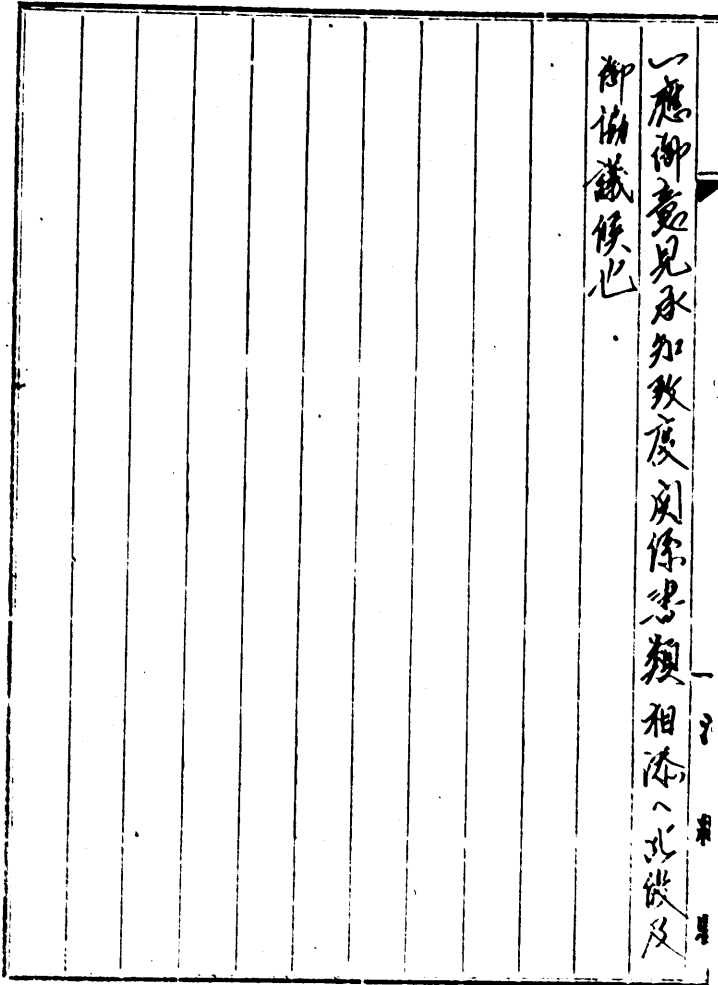 一應御意見承知致度関係書類相添へ此段及
御協議候也